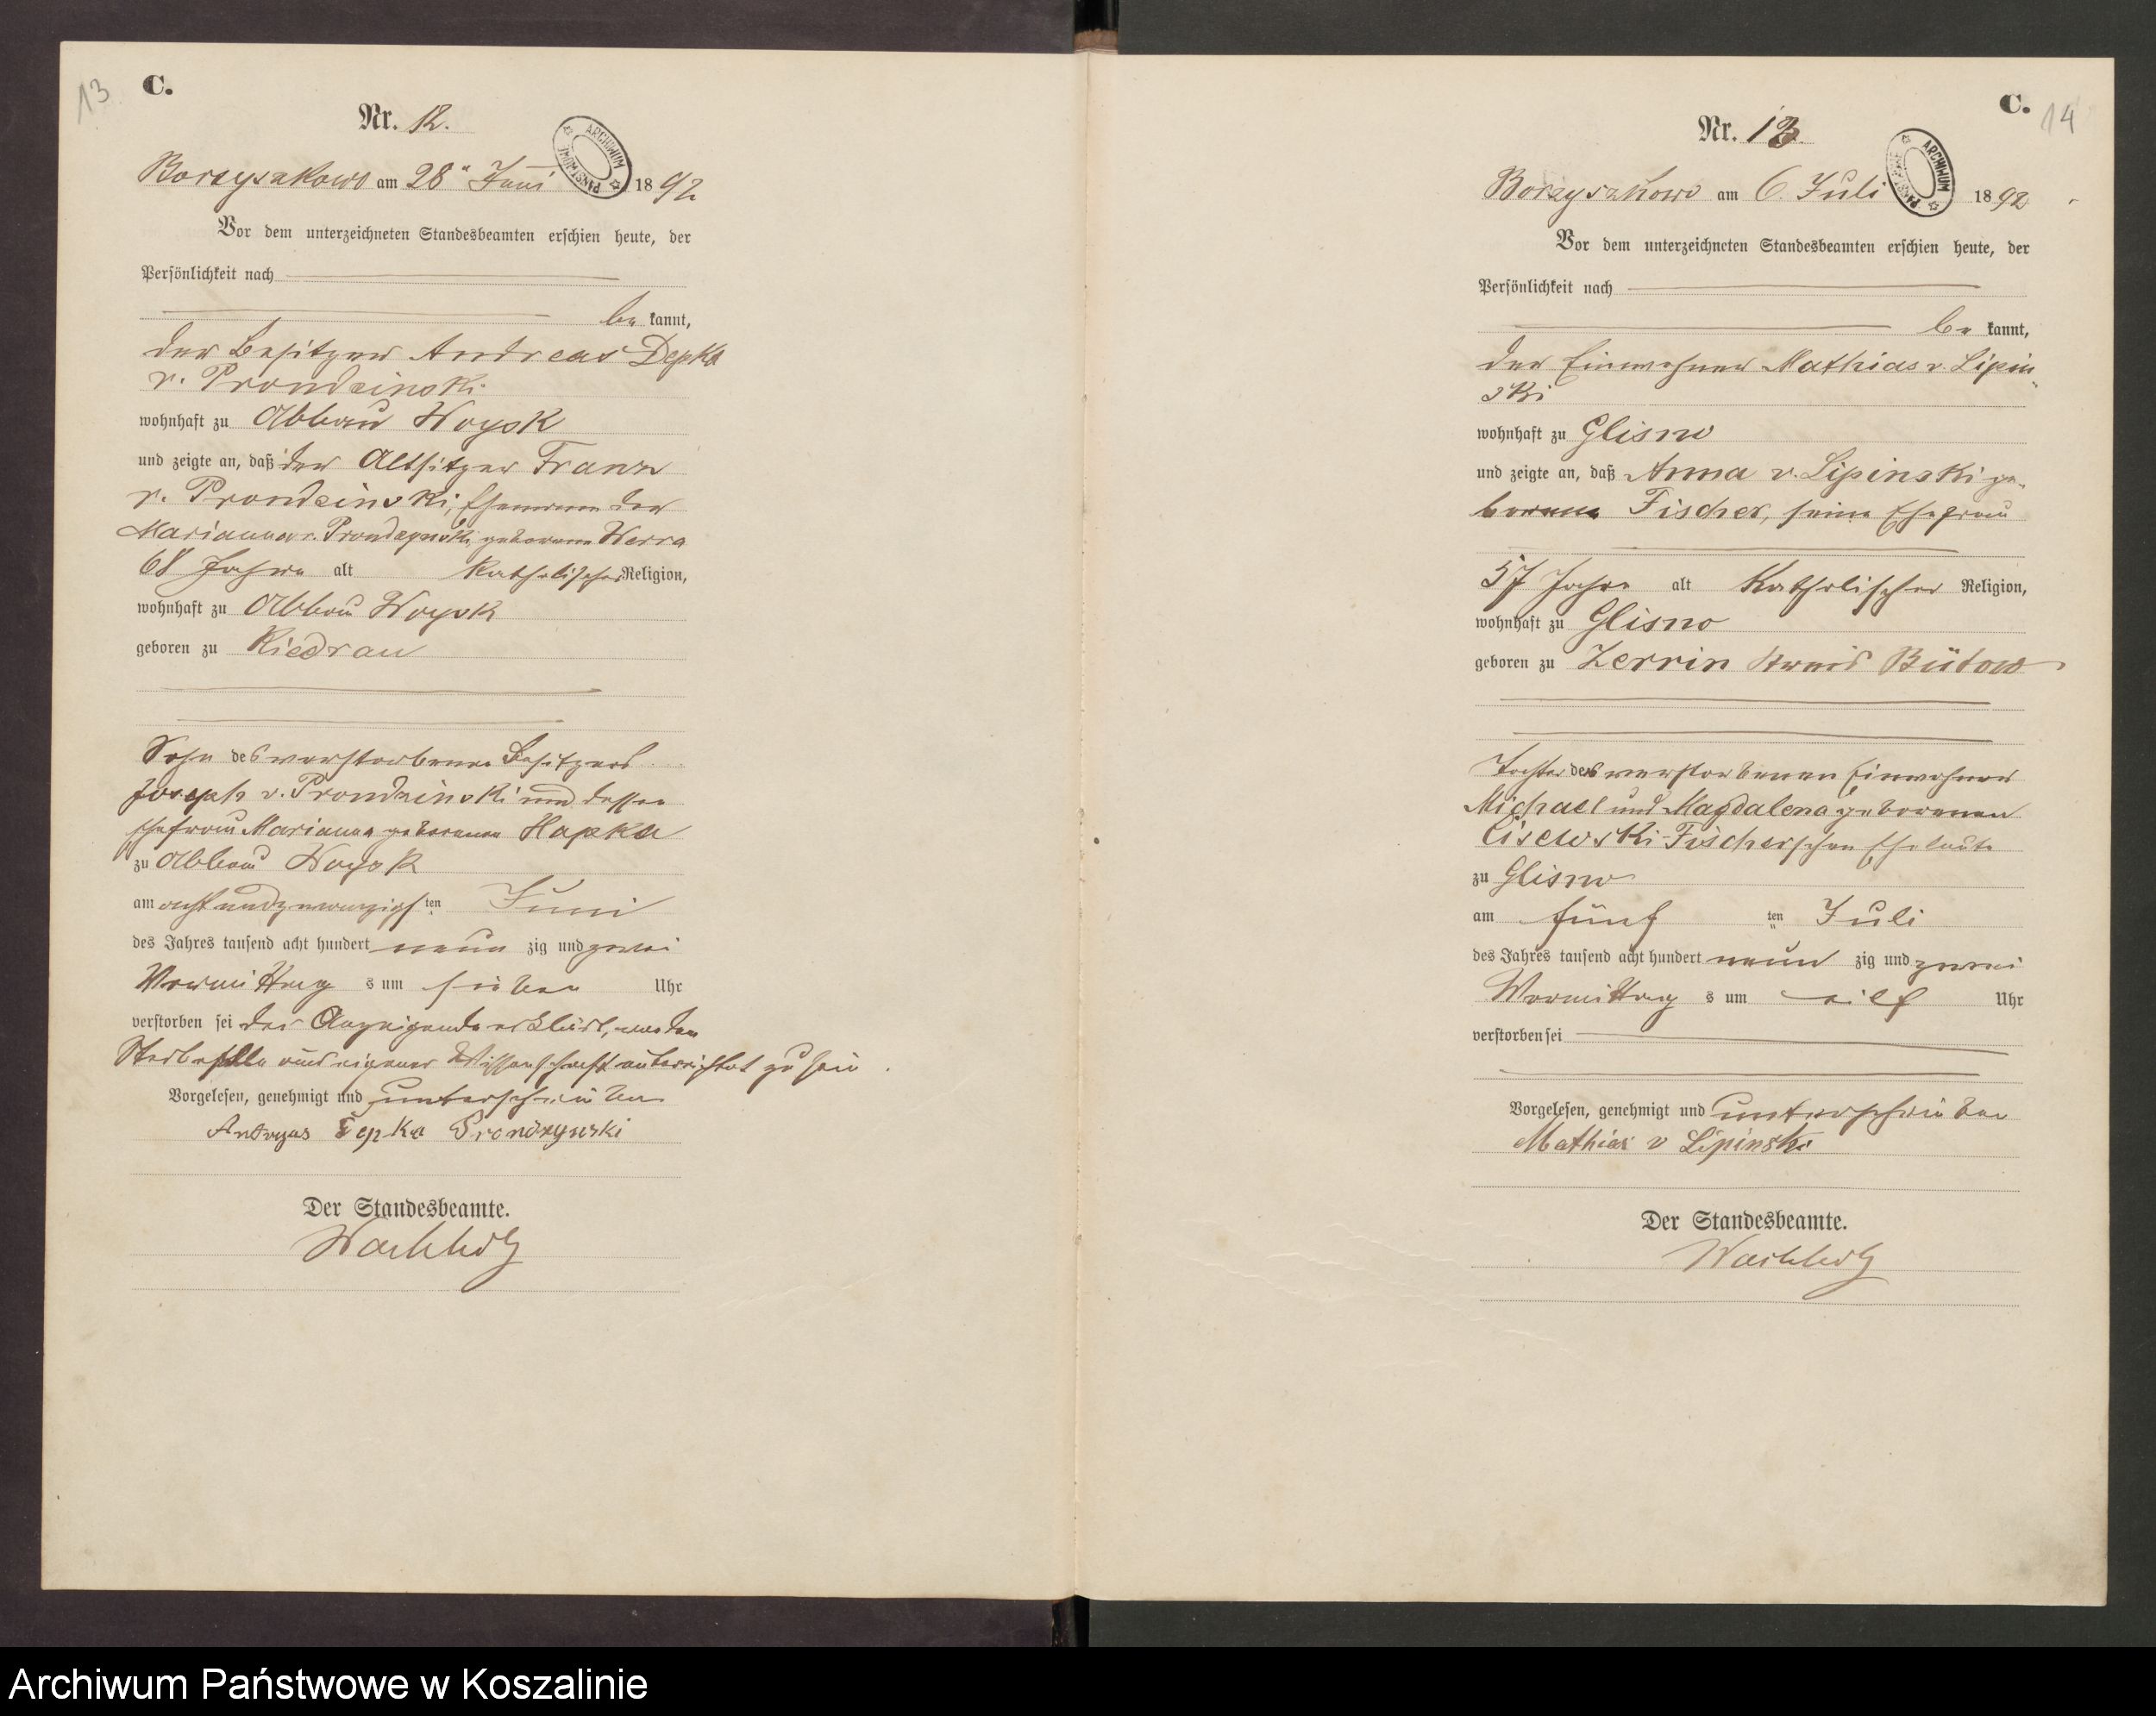 13
C.
Nr. 12.
ARCHIWUM PAŃSTWOWE
Borzyszkowo am 28ten Juni 1892
Vor dem unterzeichneten Standesbeamten erschien heute, der
Persönlichkeit nach
be kannt,
der Besitzer Andreas Depka
v. Prondzinski
wohnhaft zu Abbau Woysk
und zeigte an, daß der Altsitzer Franz
v. Prondzinski, Ehemann der
Marianna v. Prondzynski, geborene Werra
68 Jahre alt katholischer Religion,
wohnhaft zu Abbau Woysk
geboren zu Kiedrau
Sohn des verstorbenen Besitzers
Joseph v. Prondzinski und dessen
Ehefrau Marianna geborenen Hapka
zu Abbau Woysk
am acht und zwanzigsten Juni
des Jahres tausend acht hundert neun zig und zwei
Vormittags um sieben Uhr
verstorben sei der Anzeigende erklärt, von dem
Sterbefalle aus eigener Wissenschaft unterrichtet zu sein.
Vorgelesen, genehmigt und unterschrieben
Andryas Depka Prondzynski
Der Standesbeamte.
Wachholz
C.
14
Nr. 13.
ARCHIWUM PAŃSTWOWE
Borzyszkowo am 6. Juli 1892
Vor dem unterzeichneten Standesbeamten erschien heute, der
Persönlichkeit nach
be kannt,
der Einwohner Mathias v. Lipin
ski
wohnhaft zu Glisno
und zeigte an, daß Anna v. Lipinski ge-
borene Fischer, seine Ehefrau
57 Jahre alt katholischer Religion,
wohnhaft zu Glisno
geboren zu Zerrin Kreis Bütow
Tochter des verstorbenen Einwohner
Michael und Magdalena geborenen
Cisewski-Fischerschen Eheleute
zu Glisno
am fünf ten Juli
des Jahres tausend acht hundert neun zig und zwei
Vormittags um eilf Uhr
verstorben sei
Vorgelesen, genehmigt und unterschrieben
Mathias v Lipinski
Der Standesbeamte.
Wachholz
Archiwum Państwowe w Koszalinie